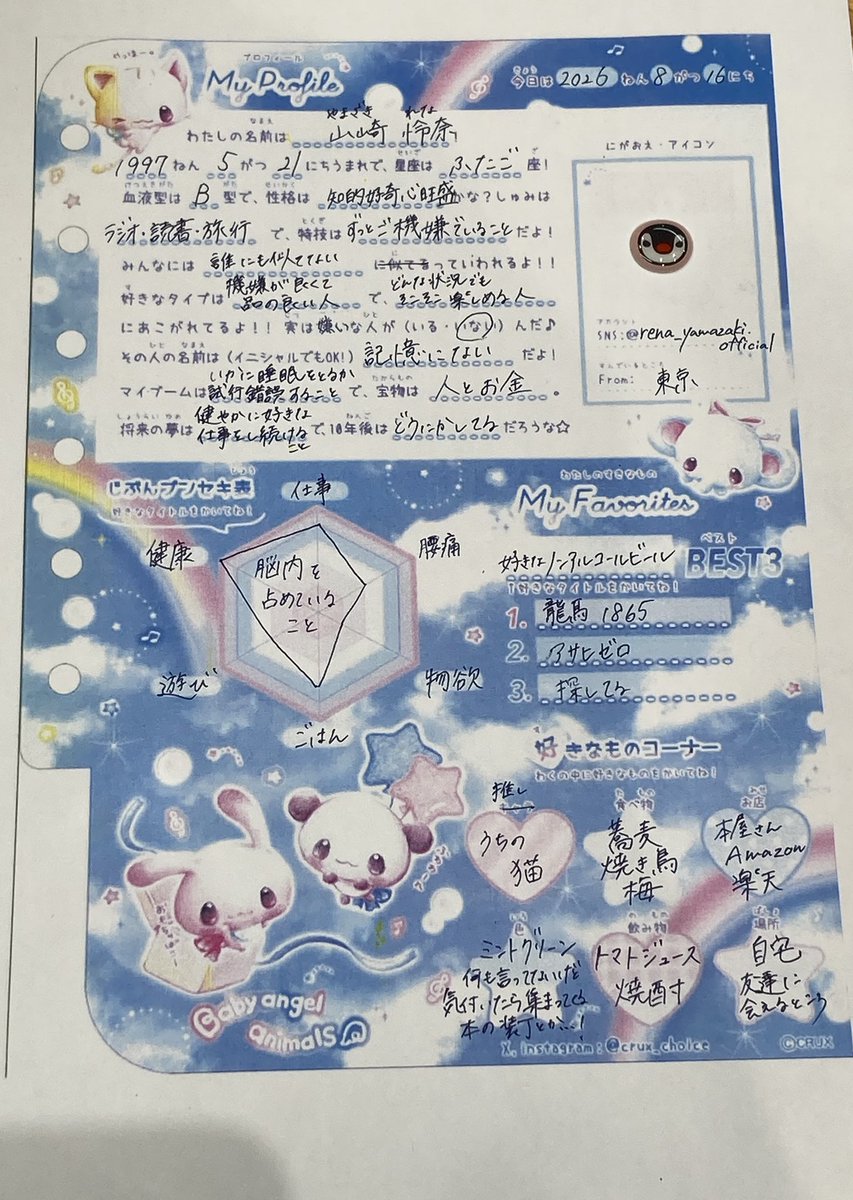 やっほー。
プロフィール
My Profile
きょう
今日は 2026 ねん 8 がつ 16 にち
なまえ やまざき れな
わたしの名前は 山崎 怜奈
せいざ ざ
1997 ねん 5 がつ 21 にちうまれで、星座は ふたご 座!
けつえきがた がた せいかく
血液型は B 型で、性格は 知的好奇心旺盛 かな?しゅみは
とくぎ
ラジオ・読書・旅行 で、特技は ずっとご機嫌でいること だよ!
みんなには 誰にも似てない に似てるっていわれるよ!!
好きなタイプは 機嫌が良くて品の良い人 で、どんな状況でもそこそこ楽しめる人
にあこがれてるよ!!実は嫌いな人が(いる・いない)んだ♪
ひと なまえ
その人の名前は(イニシャルでもOK!)記憶にない だよ!
たからもの
マイブームは いかに睡眠をとるか試行錯誤すること で、宝物は 人とお金 。
しょうらい ゆめ ねんご
将来の夢は 健やかに好きな仕事をし続けること で、10年後は どうにかしてる だろうな☆
にがおえ・アイコン
アカウント
SNS:@rena_yamazaki.official
すんでいるところ
From: 東京
じぶんブンセキ表
好きなタイトルをかいてね!
仕事
腰痛
物欲
ごはん
遊び
健康
脳内を占めていること
わたしのすきなもの
My Favorites
好きなノンアルコールビール
ベスト
BEST3
↑好きなタイトルをかいてね!
1. 龍馬1865
2. アサヒゼロ
3. 探してる
好きなものコーナー
わくの中に好きなものをかいてね!
推し
うちの猫
た もの
食べ物
蕎麦
焼き鳥
梅
みせ
お店
本屋さん
Amazon
楽天
いろ
色
ミントグリーン
何も言ってないけど
気付いたら集まってる
本の装丁とか…!
の もの
飲み物
トマトジュース
焼酎
ばしょ
場所
自宅
友達に
会えるところ
Baby angel
animals
X, instagram:@crux_choice
©CRUX